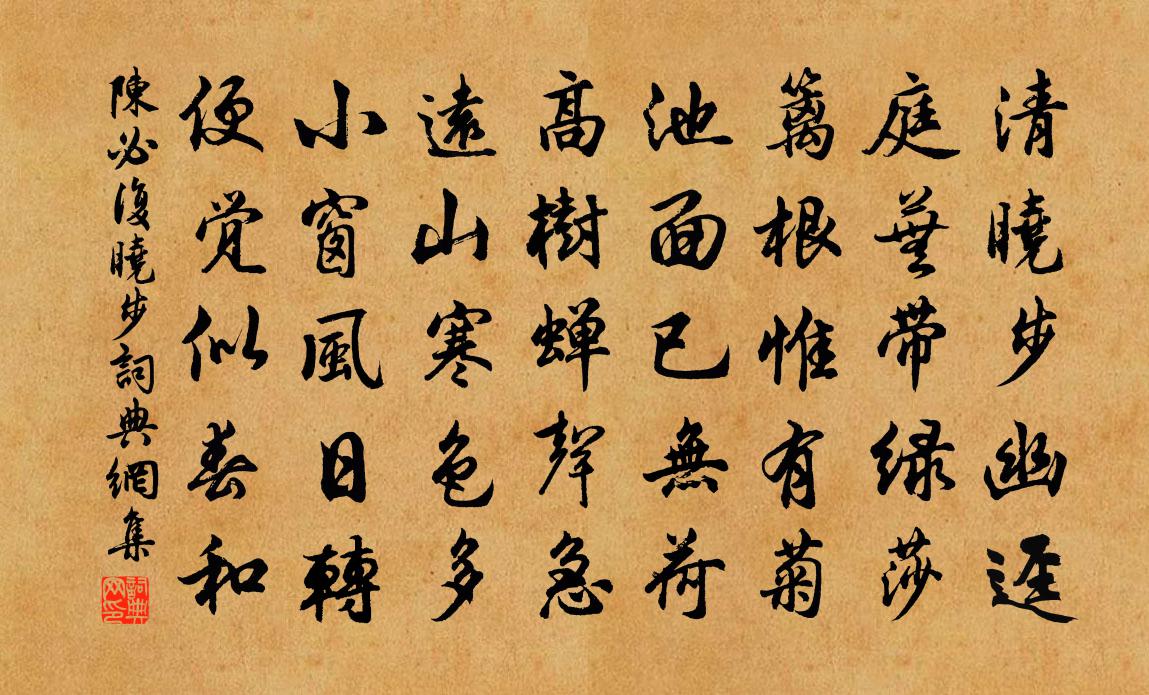 清曉步幽逕
庭蕪帶緑莎
籬根惟有菊
池面已無荷
高樹蟬聲急
遠山寒色多
小窗風日轉
便覺似春和
陳必復曉步詞典網集
詞典网印